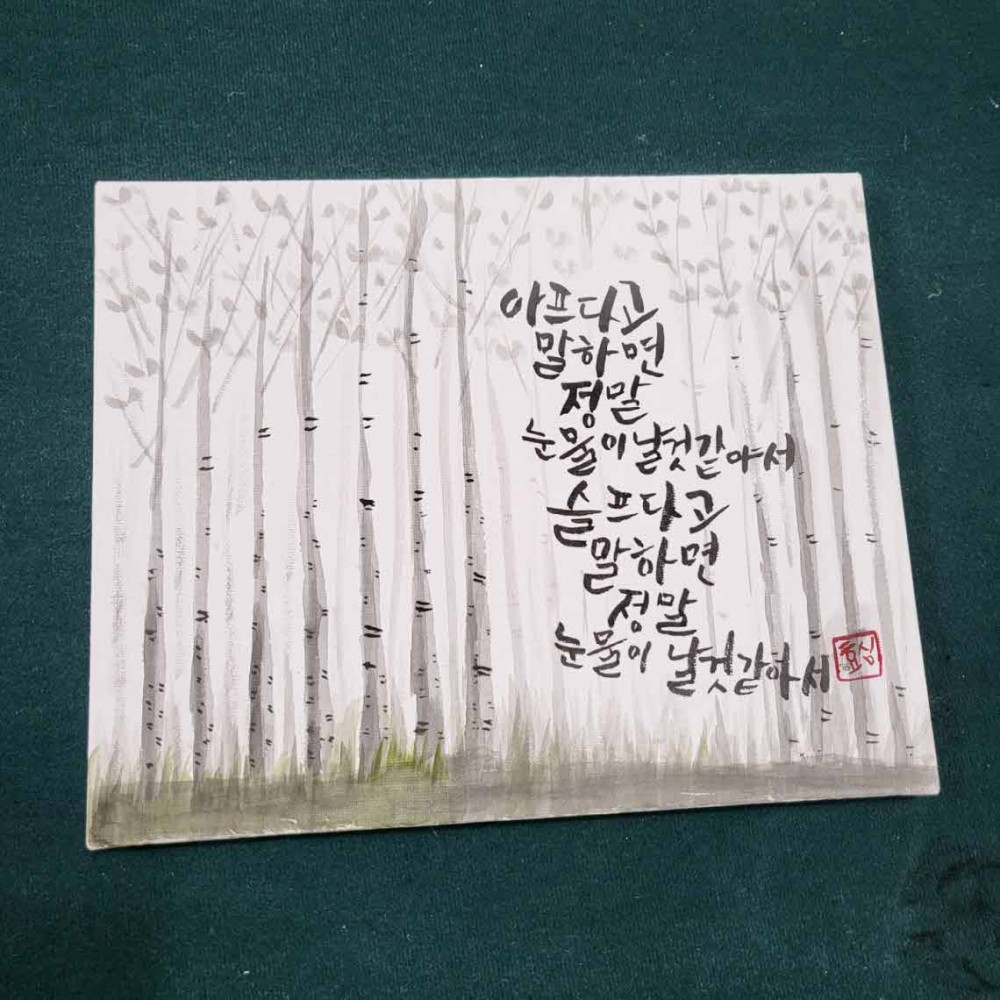 아프다고
말하면
정말
눈물이 날것같아서
슬프다고
말하면
정말
눈물이 날것같아서
효심